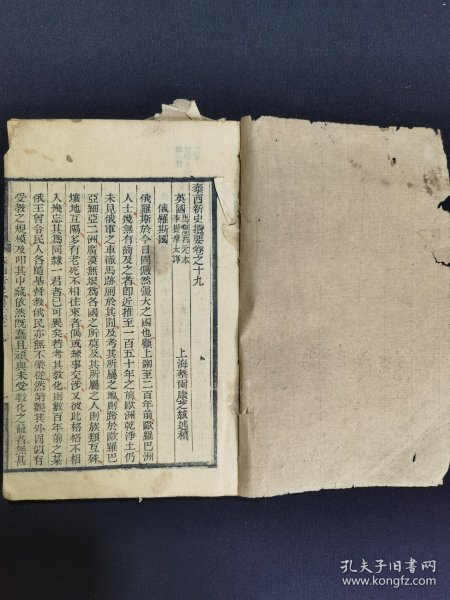 泰西新史攬要卷之十九
英國馬懇西元本
李提摩太譯
上海蔡爾康芝紱述稿
俄羅斯國
俄羅斯於今日固儼然強大之國也顧上溯至二百年前歐羅巴洲
人士幾無有齒及之者即近推至一百五十年之前歐洲乾淨土仍
未見俄軍之車轍馬跡廁於其間及考其所屬之地則跨於歐羅巴
亞細亞二洲廣漠無垠爲各國之所莫及其所屬之人則族類互殊
壤地互隔多有老死不相往來者偶或辦事交涉又彼此格格不相
入幾忘其爲同隸一君者已可異矣若考其教化則數百年前之某
俄王曾令民人各隨基督教俄民亦無不樂從然第觀其外固似有
受教之規模及叩其中藏依然旣蠢且頑與未受教化之
者無甚
孔夫子旧书网
www.kongfz.com